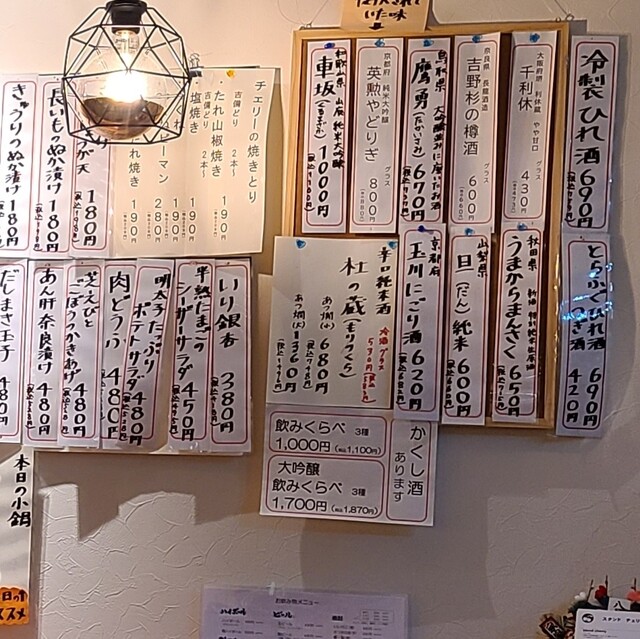 冷製ひれ酒 690円
とらふぐひれ酒 690円
つぎ酒 420円
大阪府堺 利休蔵 やや甘口
千利休
グラス 430円
奈良県 長龍酒造
吉野杉の樽酒
グラス 600円
鳥取県
鷹勇
670円
京都府 純米大吟醸
英勲やどりぎ
グラス 800円
和歌山県 山廃純米大吟醸
車坂
1000円
秋田県
うまからまんさく 650円
山梨県
旦(だん)純米 600円
京都府
玉川にごり酒 620円
辛口純米酒
杜の蔵(もりのくら)
冷酒グラス 570円
あつ燗(小) 680円
あつ燗(大) 1360円
かくし酒
あります
飲みくらべ 3種
1,000円(税込1,100円)
大吟醸
飲みくらべ 3種
1,700円(税込1,870円)
チェリーの焼きとり
吉備どり 2本〜
たれ山椒焼き 190円
吉備どり 2本〜
塩焼き 190円
ーマン 280円
れ焼き 190円
天 180円
長いもぬか漬け 180円
きゅうりのぬか漬け 180円
いり銀杏 380円
半熟たまごの
シーザーサラダ 450円
明太子たっぷり
ポテトサラダ 480円
肉どうふ 480円
芝えびと
ごぼうのかきあげ 480円
あん肝奈良漬け 480円
だしまき玉子 480円
本日の小鍋
お飲み物メニュー
ハイボール
ビール